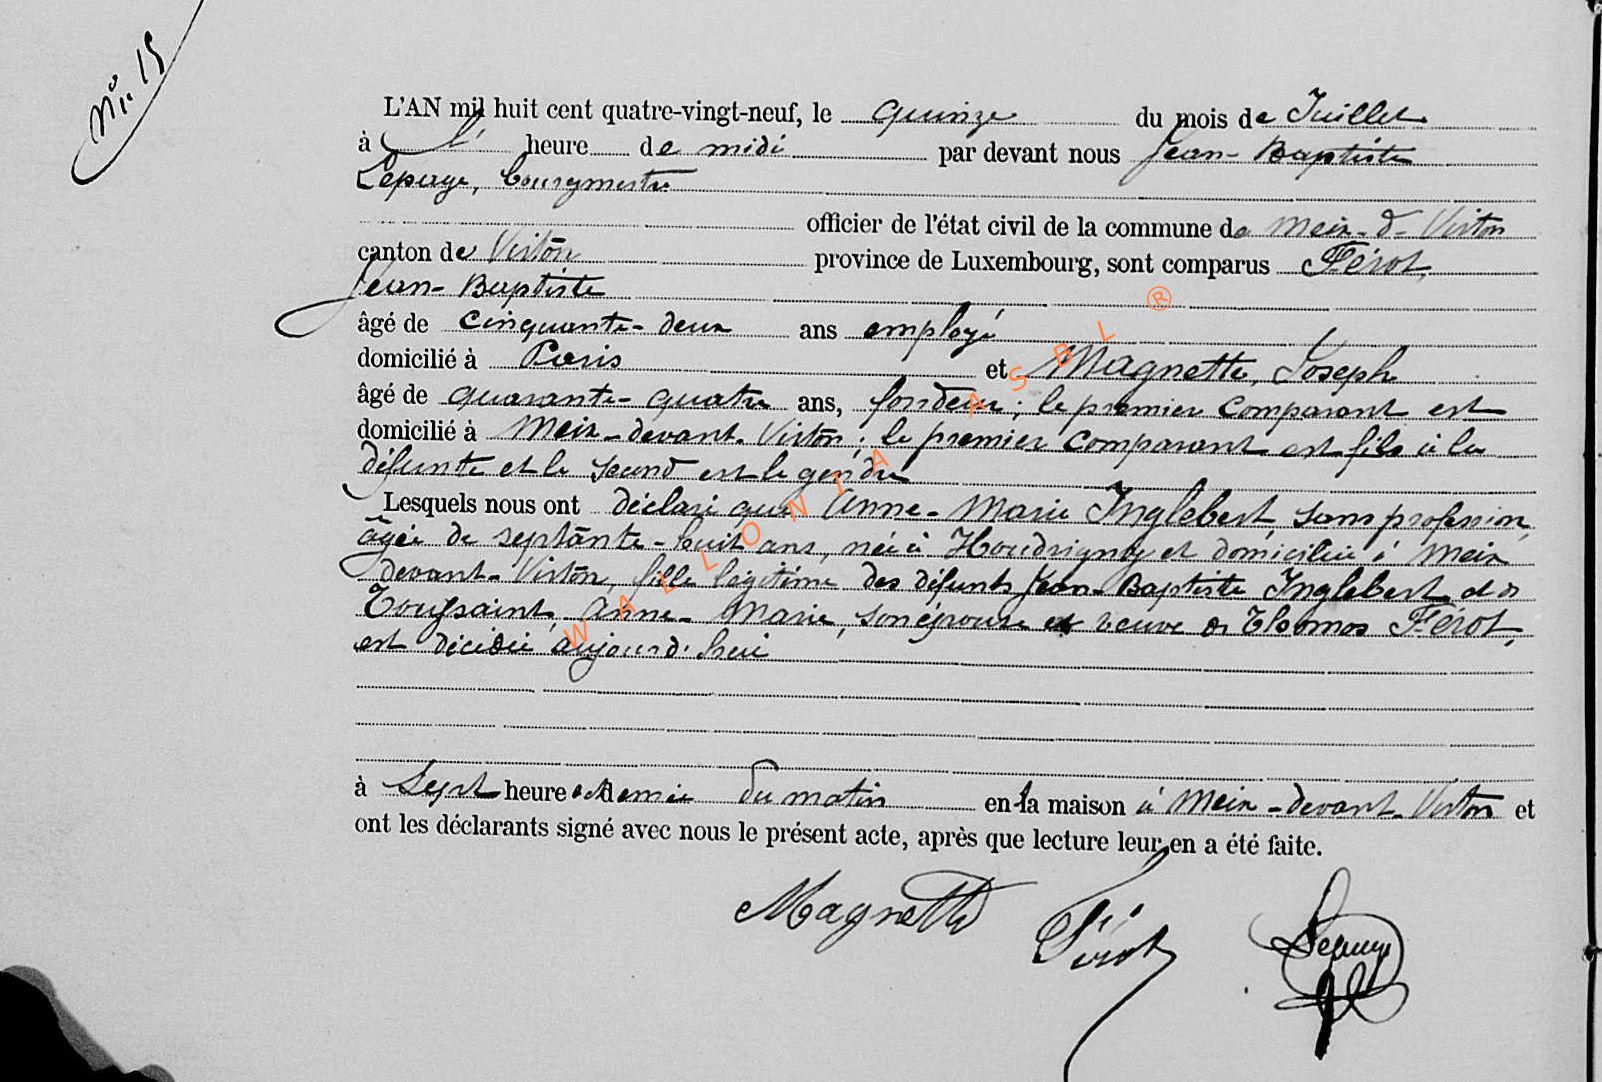 N° 15
L'AN mil huit cent quatre-vingt-neuf, le quinze du mois de Juillet
à l' heure de midi par devant nous Jean-Baptiste
Lepage, bourgmestre
officier de l'état civil de la commune de Meix-d-Virton
canton de Virton province de Luxembourg, sont comparus Férot,
Jean-Baptiste
âgé de cinquante-deux ans employé
domicilié à Paris et Magnette, Joseph
âgé de quarante-quatre ans, fondeur; le premier comparant est
domicilié à Meix-devant-Virton; le premier comparant est fils à la
défunte et le second est le gendre
Lesquels nous ont déclaré que Anne-Marie Inglebert, sans profession,
âgée de septante-huit ans, née à Houdrigny et domiciliée à Meix
devant-Virton, fille légitime des défunts Jean-Baptiste Inglebert et de
Toussaint, Anne-Marie, son épouse et veuve de Thomas Férot,
est décédée aujourd'hui
à Sept heures et demie du matin en la maison à Meix-devant-Virton et
ont les déclarants signé avec nous le présent acte, après que lecture leur en a été faite.
Magnette Férot Lepage
WALLONIA ASBL ®